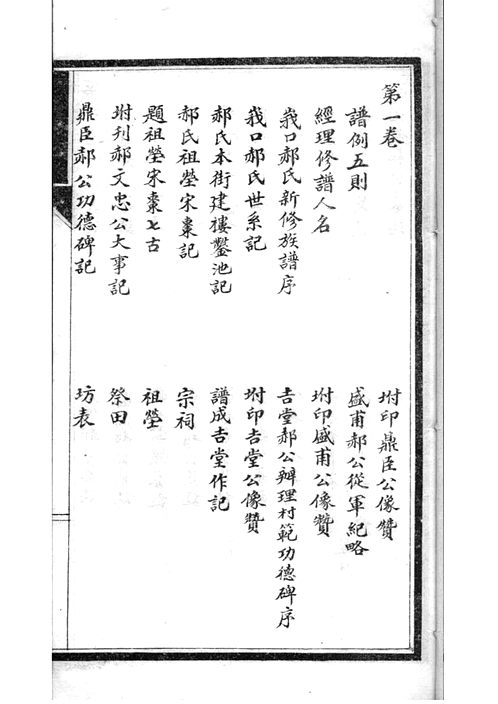 第一卷
譜例五則
經理修譜人名
峩口郝氏新修族譜序
峩口郝氏世系記
郝氏本街建樓鑿池記
郝氏祖塋宋棗記
題祖塋宋棗七古
坿刊郝文忠公大事記
鼎臣郝公功德碑記
坿印鼎臣公像贊
盛甫郝公從軍紀略
坿印盛甫公像贊
吉堂郝公辦理村範功德碑序
坿印吉堂公像贊
譜成吉堂作記
宗祠
祖塋
祭田
坊表